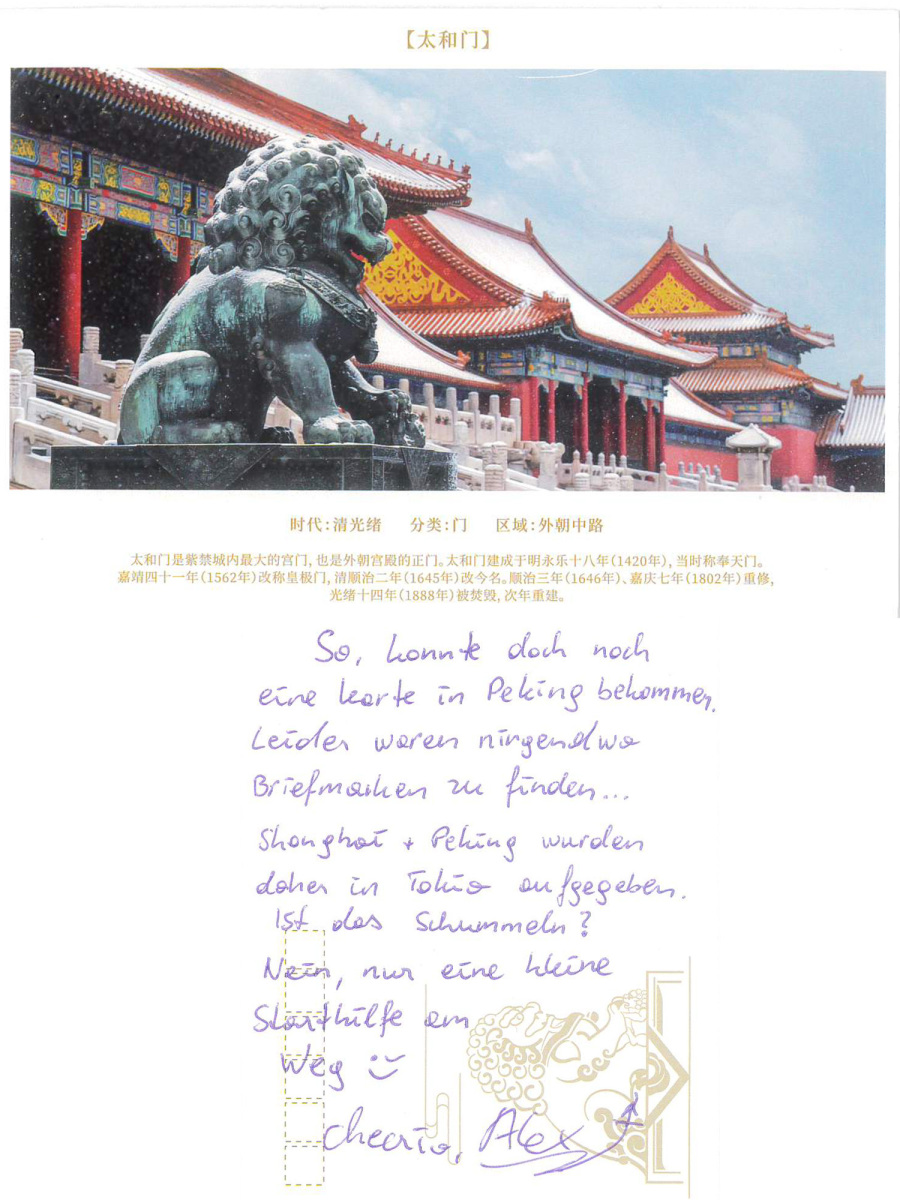 【太和门】
时代:清光绪 分类:门 区域:外朝中路
太和门是紫禁城内最大的宫门,也是外朝宫殿的正门。太和门建成于明永乐十八年(1420年),当时称奉天门。
嘉靖四十一年(1562年)改称皇极门,清顺治二年(1645年)改今名。顺治三年(1646年)、嘉庆七年(1802年)重修,
光绪十四年(1888年)被焚毁,次年重建。
So, konnte doch noch
eine Karte in Peking bekommen.
Leider waren nirgendwo
Briefmarken zu finden...
Shanghai + Peking wurden
daher in Tokio aufgegeben.
Ist das Schummeln?
Nein, nur eine kleine
Starthilfe am
Weg
Cheerio, Alex